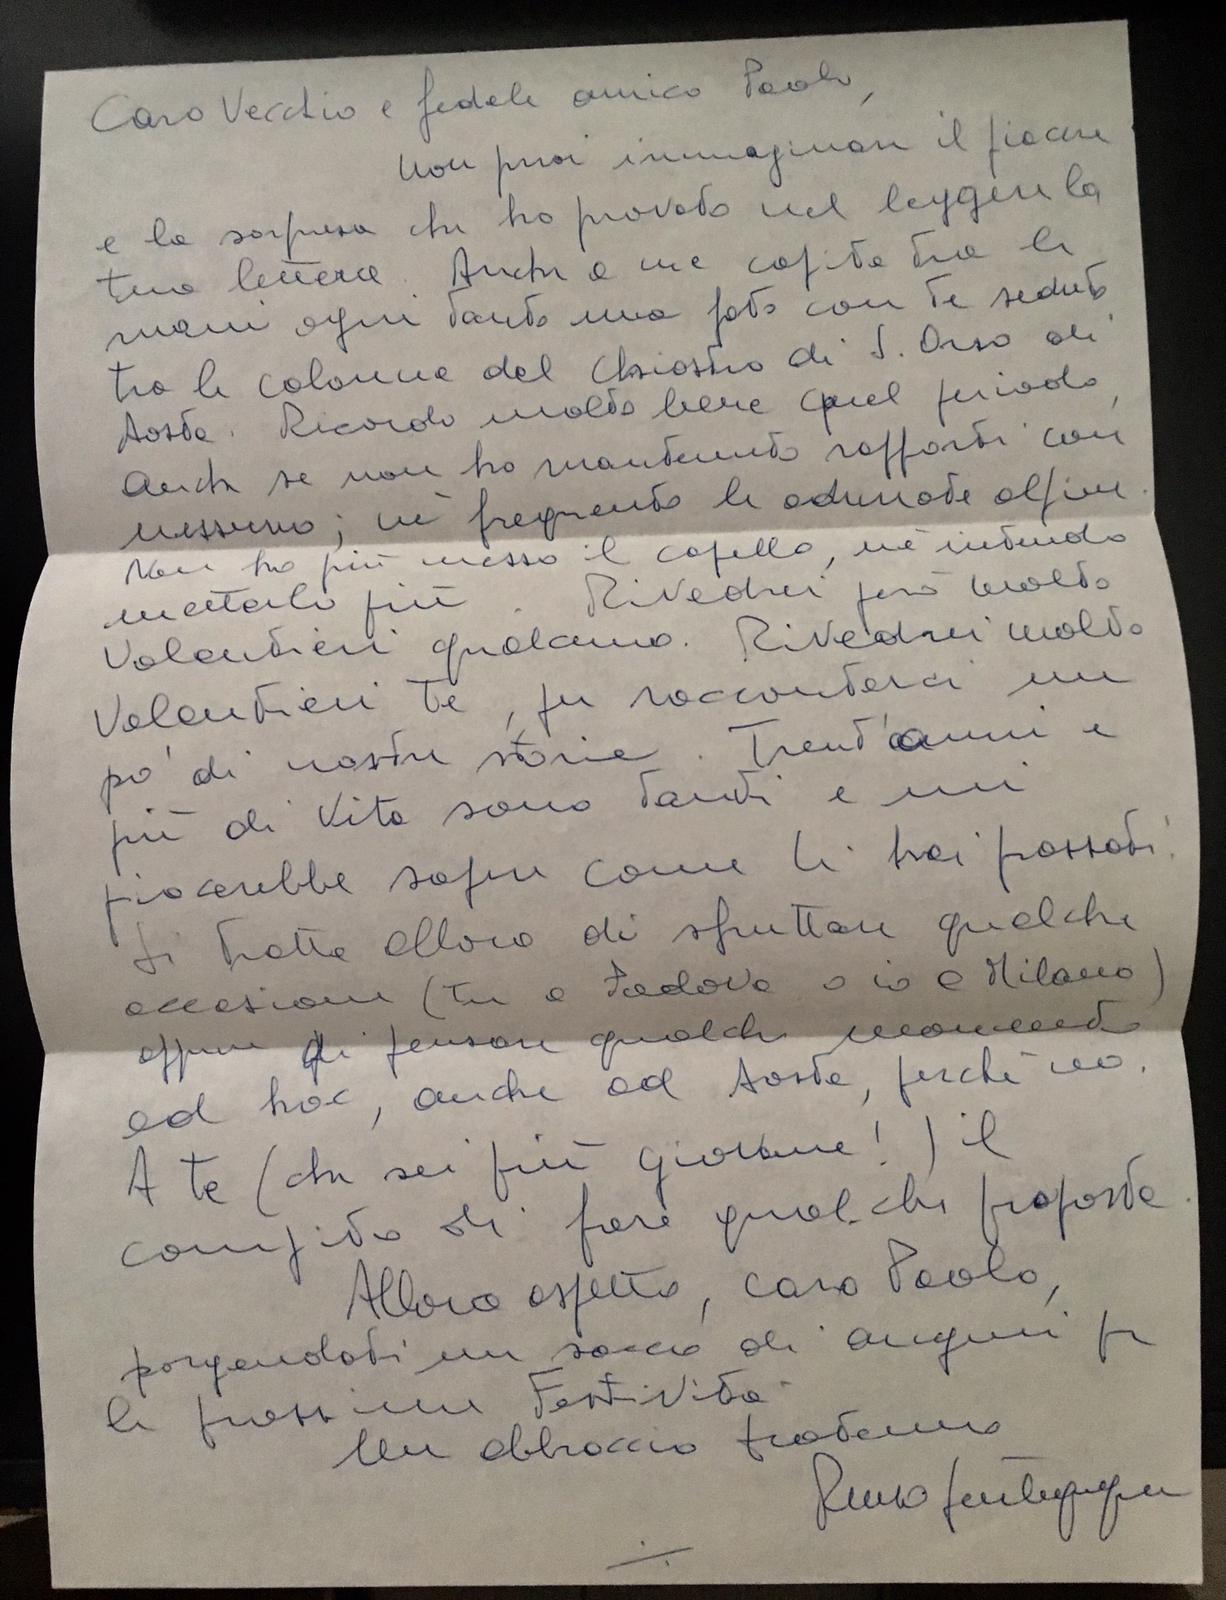 Caro Vecchio e fedele amico Paolo,
non puoi immaginare il piacere
e la sorpresa che ho provato nel leggere la
tua lettera. Anche a me capita tra le
mani ogni tanto una foto con te seduto
tra le colonne del Chiostro di S. Orso di
Aosta. Ricordo molto bene quel periodo,
anche se non ho mantenuto rapporti con
nessuno; nè frequento le adunate alpine.
Non ho più messo il capello, nè intendo
metterlo più. Rivedrei però molto
volentieri qualcuno. Rivedrei molto
volentieri te, per raccontarci un
po' di nostre storie. Trent'anni e
più di vita sono tanti e mi
piacerebbe sapere come li hai passati.
Si tratta allora di sfruttare qualche
occasione (tu a Padova o io a Milano)
oppure di pensare qualche momento
ad hoc, anche ad Aosta, perchè no.
A te (che sei più giovane!) il
compito di fare qualche proposta.
Allora aspetto, caro Paolo,
porgendoti un sacco di auguri per
le prossime Festività
Un abbraccio fraterno